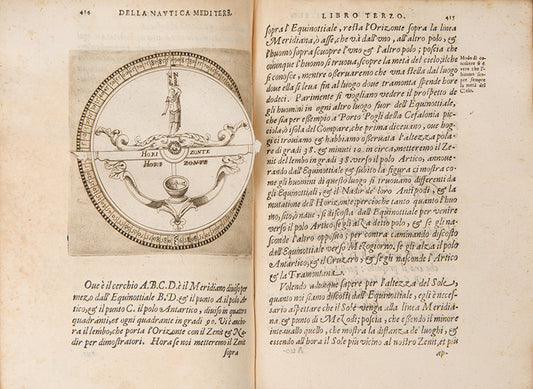 414
DELLA NAVTICA MEDITERR.
HORI ZONTE
HORI ZONTE
Oue è il cerchio A.B.C.D. è il Meridiano diuiso per
mezo dall'Equinottiale B.D. & il punto A. il polo Ar
tico, & il punto C. il polo Antartico, diuiso in quattro
quadranti, et ogni quadrante in gradi 90. Vi è anco
ra il lembo, che porta l'Orizonte con il Zenit & Na
dir per dimostratori. Hora se noi metteremo il Zenit
sopra
LIBRO TERZO.
415
sopra l'Equinottiale, resta l'Orizonte sopra la linea
Meridiana, ò asse, che và dall'vno, all'altro polo, &
l'huomo scuopre l'vno & l'altro polo; poscia che
ouunque l'huomo si truoua, scopre la metà del cielo, il che
si conosce, mentre osseruaremo che vna stella dal luogo
doue ella si leua fin al luogo doue tramonta spende hore
dodeci. Parimente si vogliano vedere il prospetto de
gli huomini in ogni altro luogo fuor dell'Equinottiale,
che sia per essempio a Porto Pogli della Cefalonia pic
ciola, ò Isola del Compare, che prima diceuano, oue bog
gi ci trouiamo & habbiamo osseruata l'altezza pola
re di gradi 38. & minuti 10. in circa, metteremo il Ze
nit del lembo in gradi 38. verso il polo Artico, annoue-
rando dall'Equinottiale & subito la figura ci mostra co
me gli huomini di questo luogo si truouano differenti da
gli Equinottiali, & il Nadir de' loro Antipodi, & la
mutatione dell'Horizonte, percioche tanto quanto l'huo
mo, sito, ò naue, si discosta dall'Equinottiale per venire
verso il polo Artico se gli alza detto polo, & se gli ascon
de l'altro opposito; per contra caminando discosto
dall'Equinottiale verso Mezogiorno, se gli alza il polo
Antartico, & il Cruzero, & se gli nasconde l'Artico
& la Tramontana.
Modo di co
noscere & ve
dere che l'
huomo sco
pre sempre
la metà del
Cielo.
Volendo adunque sapere per l'altezza del Sole,
quanto noi siamo discosti dall'Equinottiale, egli è neces-
sario aspettare che il Sole venga alla linea Meridia
na, & punto di Mezodì; poscia che essendo il minore
interuallo quello, che mostra la distanza de' luoghi, &
essendo all'hora il Sole più vicino al nostro Zenit, et più